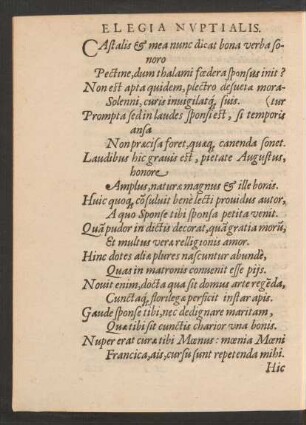 ELEGIA NVPTIALIS.
CAstalis & mea nunc dicat bona verba so-
noro
Pectine, dum thalami fœdera sponsus init?
Non est apta quidem, plectro desueta mora-
Solenni, curis inuigilatq́; suis. (tur
Prompta sed in laudes sponsi est, si temporis
ansa
Non præcisa foret, quæq́; canenda sonet.
Laudibus hic grauis est, pietate Augustus,
honore
Amplus, naturæ magnus & ille bonis.
Huic quoq; cõsuluit bene lecti prouidus autor,
A quo Sponse tibi sponsa petita venit.
Quã pudor in dictis decorat, quã gratia morũ,
Et multus veræ relligionis amor.
Hinc dotes aliæ plures nascuntur abundè,
Quas in matronis conuenit esse pijs.
Nouit enim, docta qua sit domus arte regẽda,
Cunctaq́; florilegæ perficit instar apis.
Gaude sponse tibi, nec dedignare maritam,
Quæ tibi sit cunctis charior vna bonis.
Nuper erat curæ tibi Mœnus: mœnia Mœni
Francica, ais, cursu sunt repetenda mihi.
Hic